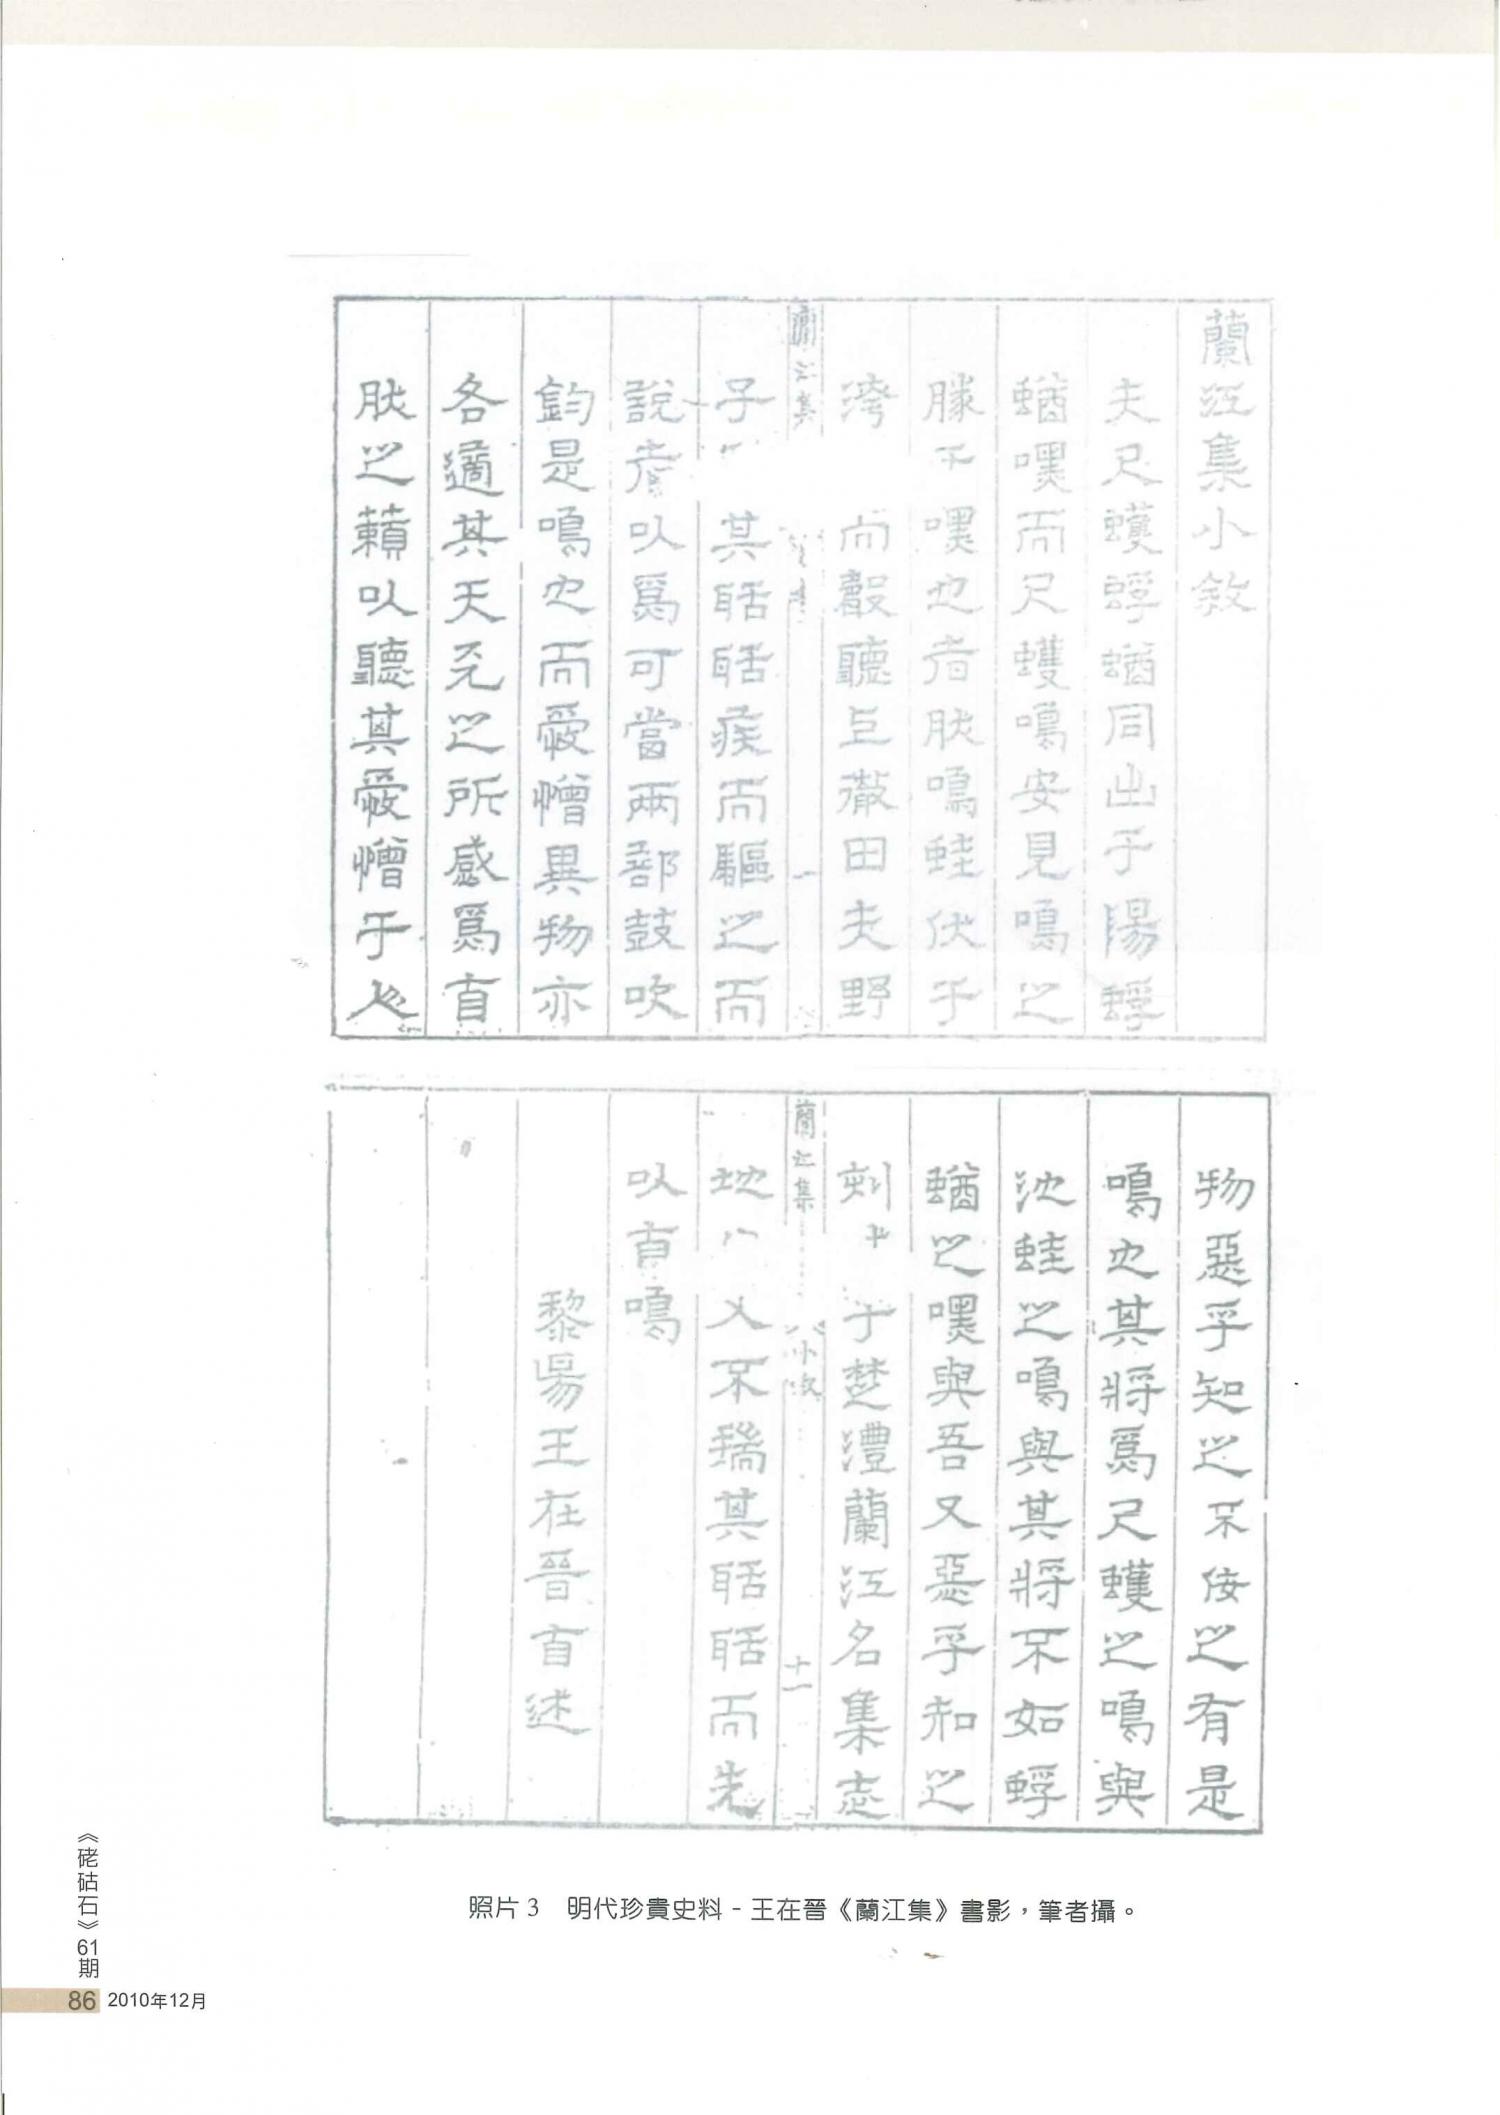 蘭江集小敘
夫尺蠖蜉蝤同出于陽蜉
蝤嘿而尺蠖鳴安見鳴之
勝于嘿也者肰鳴蛙伏于
灣 而聲聽巨徹田夫野
子 其聒聒疾而驅之而
說者以為可當兩部鼓吹
鈞是鳴也而愛憎異物亦
各適其天兂之所感為自
肰之籟以聽其愛憎于人
蘭江集
一
物惡乎知之不佞之有是
鳴也其將為尺蠖之鳴與
池蛙之鳴與其將不如蜉
蝤之嘿與吾又惡乎知之
刻 于楚澧蘭江名集志
地 人不瑞其聒聒而先
以自鳴
黎陽王在晉自述
蘭江集
小敘
十一
照片3 明代珍貴史料-王在晉《蘭江集》書影，筆者攝。
《硓𥑮石》61期
86 2010年12月